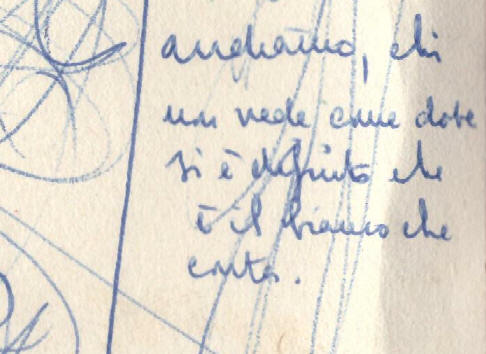 andiamo, chi
non vede come dove
si è definito che
è il bianco che
conta.